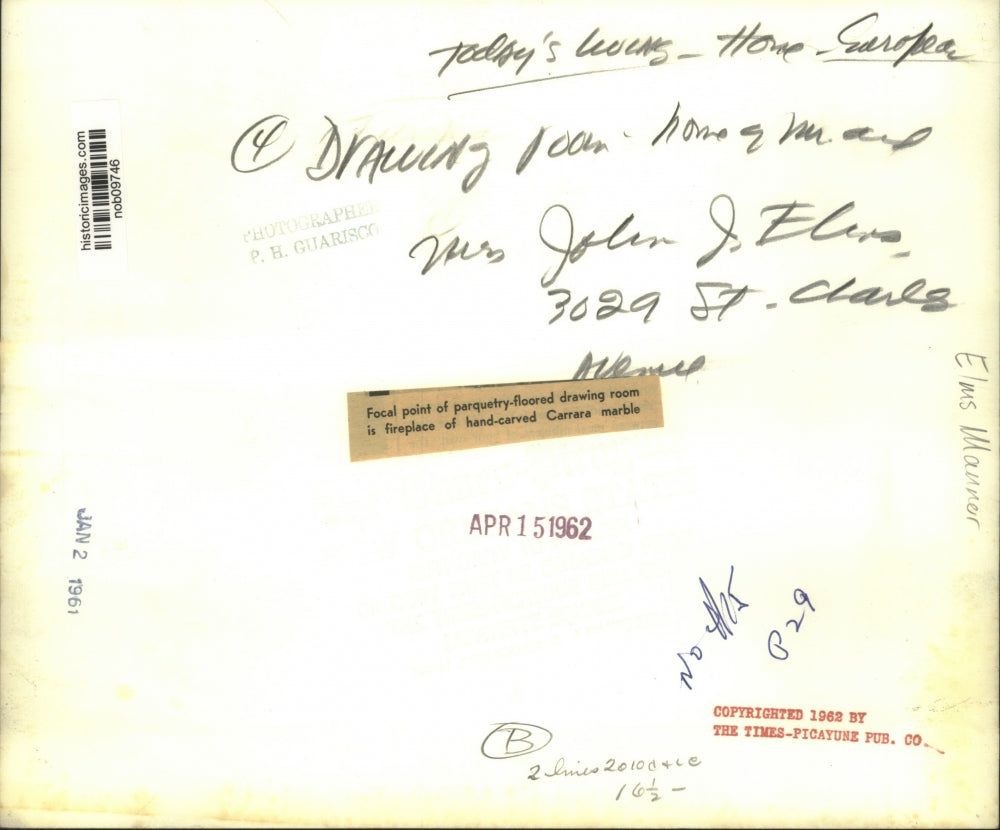 Today's Living - Home - European
4 Drawing room - home of Mr. and
Mrs John J. Elms,
3029 St. Charles
Avenue
historicimages.com
nob09746
PHOTOGRAPHER
P. H. GUARISCO
Focal point of parquetry-floored drawing room
is fireplace of hand-carved Carrara marble
Elms Manner
APR 15 1962
JAN 2 1961
No
P 29
COPYRIGHTED 1962 BY
THE TIMES-PICAYUNE PUB. CO.
B
2 lines 2010
16½ -